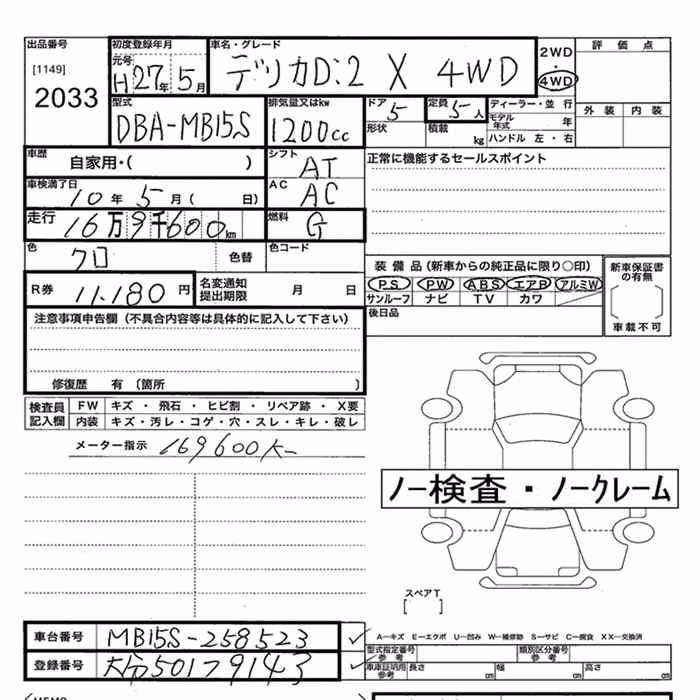 出品番号 初度登録年月 車名・グレード
[1149] 元号
2033
H 27年 5月 デリカD:2 X 4WD
2WD
・
4WD
評価点
外装 内装
型式 排気量又はkw ドア 定員 ディーラー・並行
DBA-MB15S 1200cc 5 5人
モデル年式 年
形状 積載 kg ハンドル 左・右
車歴 自家用・( ) シフト AT
正常に機能するセールスポイント
車検満了日 10年 5月( 日) AC AC
走行 16万9千600km 燃料 G
色 クロ 色替 色コード
装備品(新車からの純正品に限り○印)
PS PW ABS エアB アルミW
サンルーフ ナビ TV カワ
新車保証書の有無
[ ]
車載不可
R券 11,180円 名変通知提出期限 月 日
後日品
注意事項申告欄(不具合内容等は具体的に記入して下さい)
修復歴 有 〔箇所 〕
検査員記入欄 FW キズ・飛石・ヒビ割・リペア跡・X要
内装 キズ・汚レ・コゲ・穴・スレ・キレ・破レ
メーター指示 169600K
ノー検査・ノークレーム
スペアT
[ ]
車台番号 MB15S-258523
登録番号 大分501 79143
A―キズ E―エクボ U―凹み W―補修跡 S―サビ C―腐食 XX―交換済
型式指定番号参考 類別区分番号参考
車庫証明用参考 長さ cm 幅 cm 高さ cm